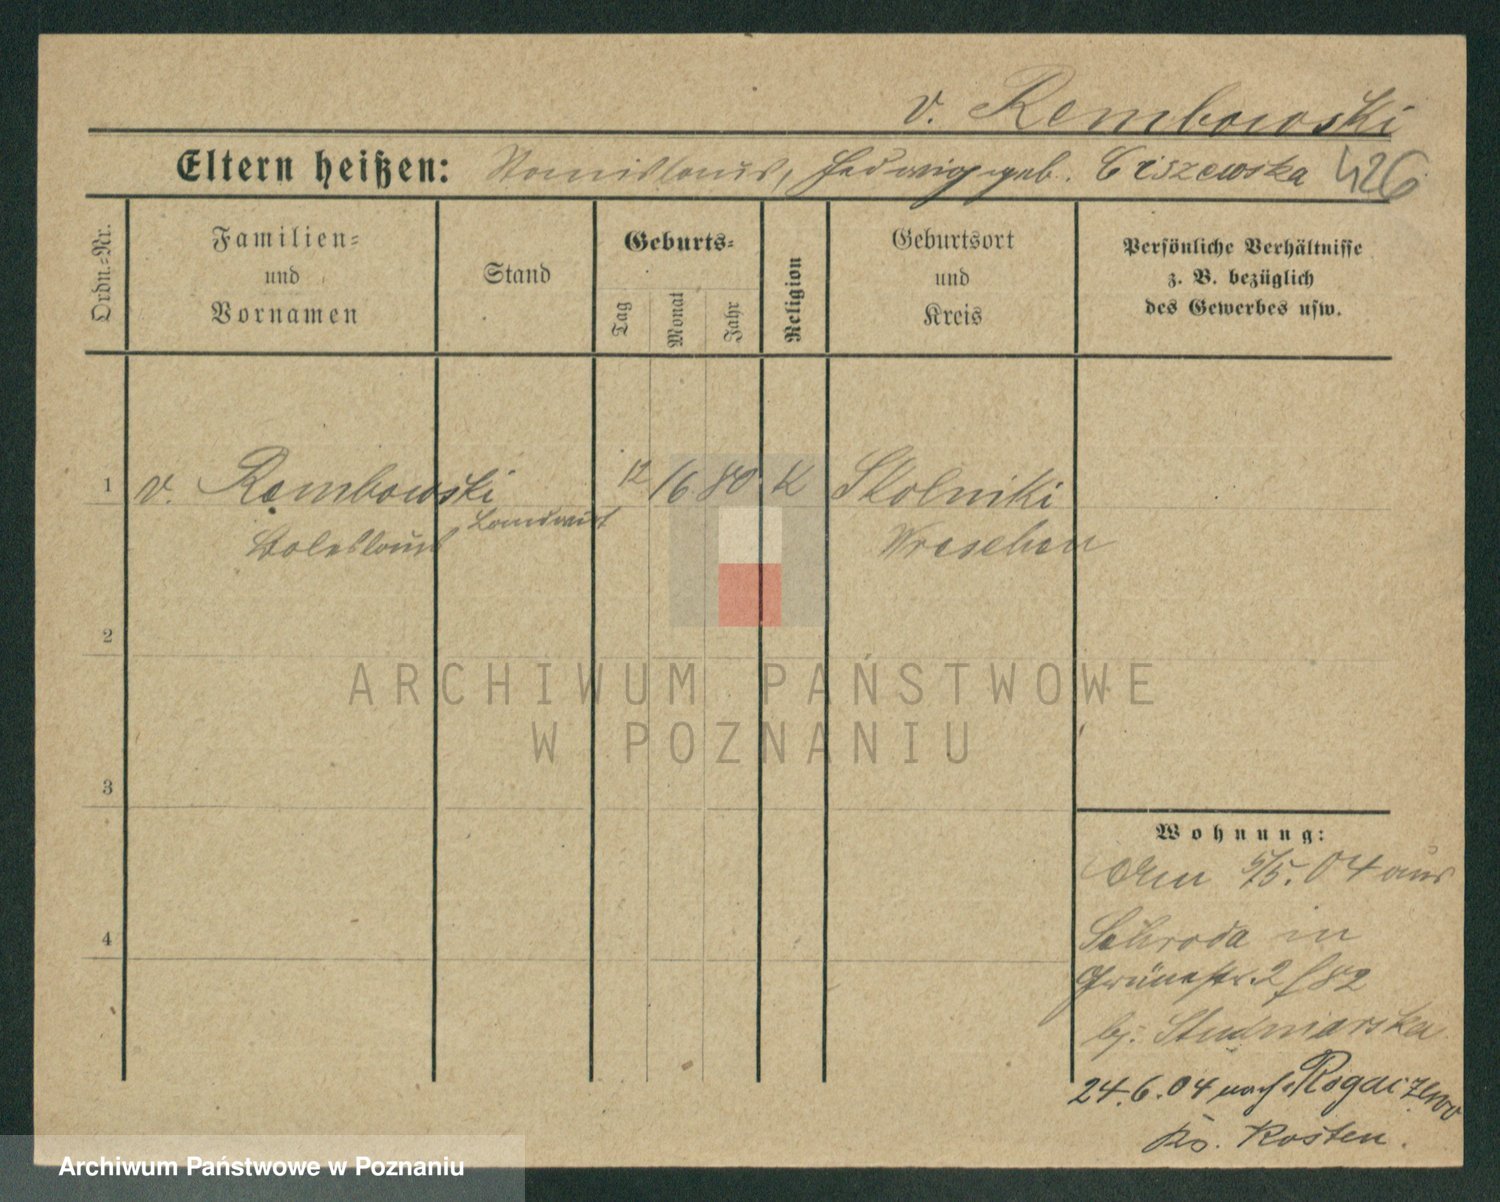 v. Rembowski
Eltern heißen: Stanislaus, Hedwig geb. Ciszewska 426
Ordn.-Nr.
Familien-
und
Vornamen
Stand
Geburts-
Tag
Monat
Jahr
Religion
Geburtsort
und
Kreis
Persönliche Verhältnisse
z. B. bezüglich
des Gewerbes usw.
1 v. Rembowski 12 /6 80 K Skolniki
Boleslaus Landwirt Wreschen
2
3
4
ARCHIWUM PAŃSTWOWE
W POZNANIU
Wohnung:
Am 5/5. 04 aus
Schroda in
Grünestr. 2 / 82
bj. Studniarska
24.6.04 nach Rogaczewo
Ks. Kosten.
Archiwum Państwowe w Poznaniu